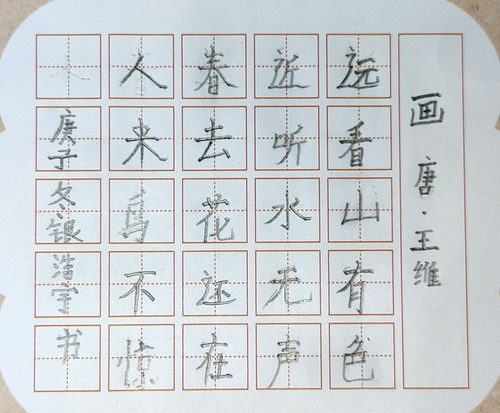 画 唐·王维
远看山有色
近听水无声
春去花还在
人来鸟不惊
庚子冬银浩宇书